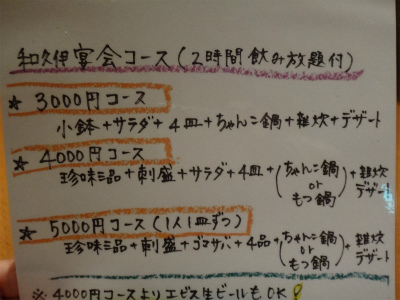 和久伊宴会コース(2時間飲み放題付)
★ 3000円コース
小鉢+サラダ+4皿+ちゃんこ鍋+雑炊+デザート
★ 4000円コース
珍味三品+刺盛+サラダ+4皿+(ちゃんこ鍋 or もつ鍋)+雑炊 デザート
★ 5000円コース(1人1皿ずつ)
珍味三品+刺盛+ゴマサバ+4品+(ちゃんこ鍋 or もつ鍋)+雑炊 デザート
※4000円コースよりエビス生ビールもOK!